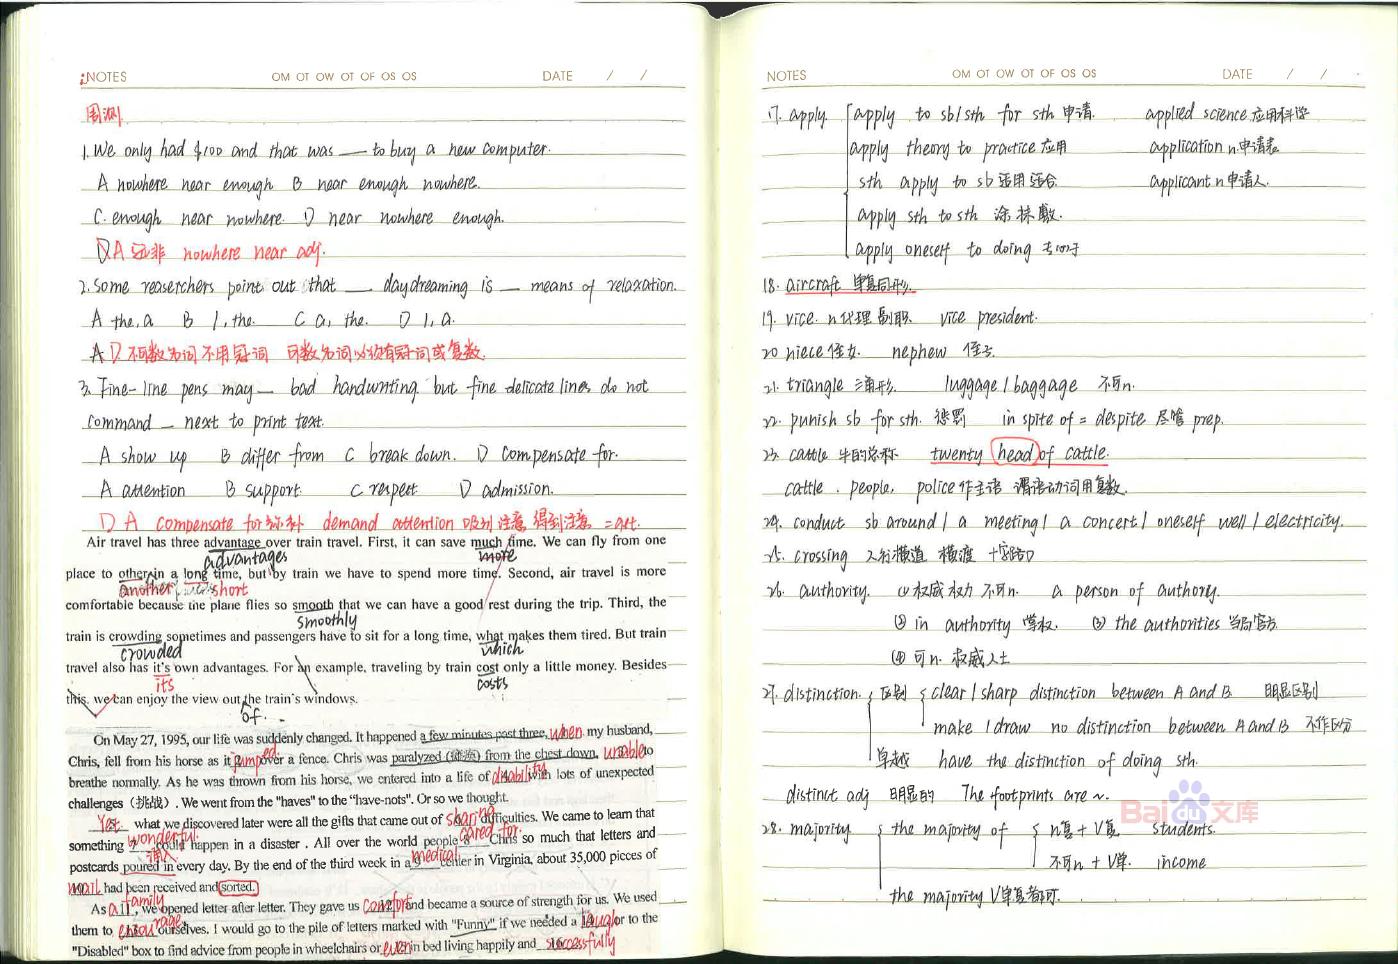 NOTES OM OT OW OT OF OS OS DATE / /
周测
1. We only had $100 and that was __ to buy a new computer.
A nowhere near enough B near enough nowhere.
C. enough near nowhere. D near nowhere enough.
D A 远非 nowhere near adj.
2. Some reaserchers point out that __ daydreaming is __ means of relaxation.
A the, a B /, the. C a, the. D /, a.
A D 不可数名词不用冠词 可数名词必须有冠词或复数.
3. Fine-line pens may __ bad handwriting but fine delicate lines do not
command __ next to print text.
A show up B differ from C break down. D compensate for.
A attention B support. C respect D admission.
D A compensate for 弥补 demand attention 吸引注意 得到注意 = get.
Air travel has three advantage over train travel. First, it can save much time. We can fly from one
advantages more
place to other in a long time, but by train we have to spend more time. Second, air travel is more
another short
comfortable because the plane flies so smooth that we can have a good rest during the trip. Third, the
smoothly
train is crowding sometimes and passengers have to sit for a long time, what makes them tired. But train
crowded which
travel also has it's own advantages. For an example, traveling by train cost only a little money. Besides
its costs
this, we can enjoy the view out the train's windows.
of
On May 27, 1995, our life was suddenly changed. It happened a few minutes past three, when my husband,
Chris, fell from his horse as it jumped over a fence. Chris was paralyzed (瘫痪) from the chest down, unable to
breathe normally. As he was thrown from his horse, we entered into a life of disability with lots of unexpected
challenges (挑战). We went from the "haves" to the "have-nots". Or so we thought.
Yet what we discovered later were all the gifts that came out of sharing difficulties. We came to learn that
something wonderful could happen in a disaster. All over the world people cared for Chris so much that letters and
涌入
postcards poured in every day. By the end of the third week in a medical center in Virginia, about 35,000 pieces of
mail had been received and sorted.
As a family, we opened letter after letter. They gave us comfort and became a source of strength for us. We used
them to encourage ourselves. I would go to the pile of letters marked with "Funny" if we needed a laugh or to the
"Disabled" box to find advice from people in wheelchairs or even in bed living happily and 16 successfully
NOTES OM OT OW OT OF OS OS DATE / /
17. apply. apply to sb/sth for sth 申请. applied science 应用科学
apply theory to practice 应用 application n.申请表
sth apply to sb 适用 适合. applicant n 申请人.
apply sth to sth 涂 抹 敷.
apply oneself to doing 专心于
18. aircraft 单复同形.
19. vice. n 代理 副职. vice president.
20 niece 侄女. nephew 侄子.
21. triangle 三角形. luggage / baggage 不可n.
22. punish sb for sth. 惩罚 in spite of = despite 尽管 prep.
23. cattle 牛的总称 twenty head of cattle.
cattle. people, police 作主语 谓语动词用复数.
24. conduct sb around / a meeting / a concert / oneself well / electricity.
25. crossing 人行横道 横渡 十字路口
26. authority. ① 权威 权力 不可n. a person of authory.
② in authority 掌权. ③ the authorities 当局 官方.
④ 可n. 权威人士
27. distinction. 区别 clear / sharp distinction between A and B 明显区别
make / draw no distinction between A and B 不作区分
卓越 have the distinction of doing sth.
distinct adj 明显的 The footprints are ~.
Bai du 文库
28. majority the majority of n复 + V复 students.
不可n + V单. income
the majority V单复都可.